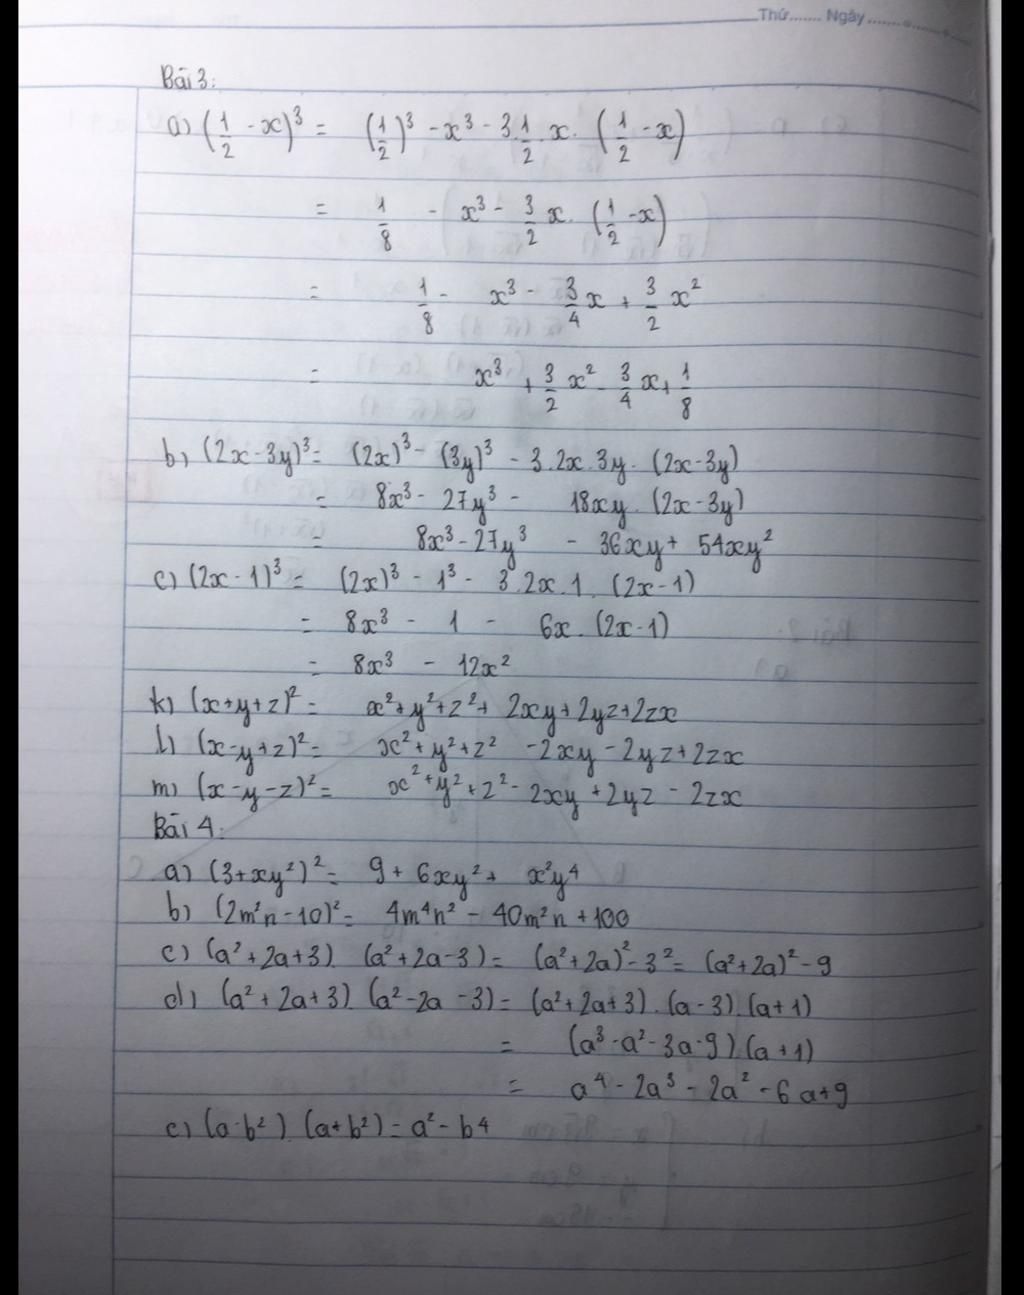 Thứ....... Ngày...............
Bài 3:
a) (1/2 - x)³ = (1/2)³ - x³ - 3.1/2.x.(1/2 - x)
= 1/8 - x³ - 3/2 x.(1/2 - x)
= 1/8 - x³ - 3/4 x + 3/2 x²
= x³ + 3/2 x² - 3/4 x + 1/8
b) (2x - 3y)³ = (2x)³ - (3y)³ - 3.2x.3y.(2x - 3y)
= 8x³ - 27y³ - 18xy.(2x - 3y)
= 8x³ - 27y³ - 36xy + 54xy²
c) (2x - 1)³ = (2x)³ - 1³ - 3.2x.1.(2x - 1)
= 8x³ - 1 - 6x.(2x - 1)
= 8x³ - 12x²
k) (x + y + z)² = x² + y² + z² + 2xy + 2yz + 2zx
l) (x - y + z)² = x² + y² + z² - 2xy - 2yz + 2zx
m) (x - y - z)² = x² + y² + z² - 2xy + 2yz - 2zx
Bài 4:
a) (3 + xy²)² = 9 + 6xy² + x²y⁴
b) (2m²n - 10)² = 4m⁴n² - 40m²n + 100
c) (a² + 2a + 3).(a² + 2a - 3) = (a² + 2a)² - 3² = (a² + 2a)² - 9
d) (a² + 2a + 3).(a² - 2a - 3) = (a² + 2a + 3).(a - 3).(a + 1)
= (a³ - a² - 3a - 9).(a + 1)
= a⁴ - 2a³ - 2a² - 6a + 9
e) (a - b²).(a + b²) = a² - b⁴